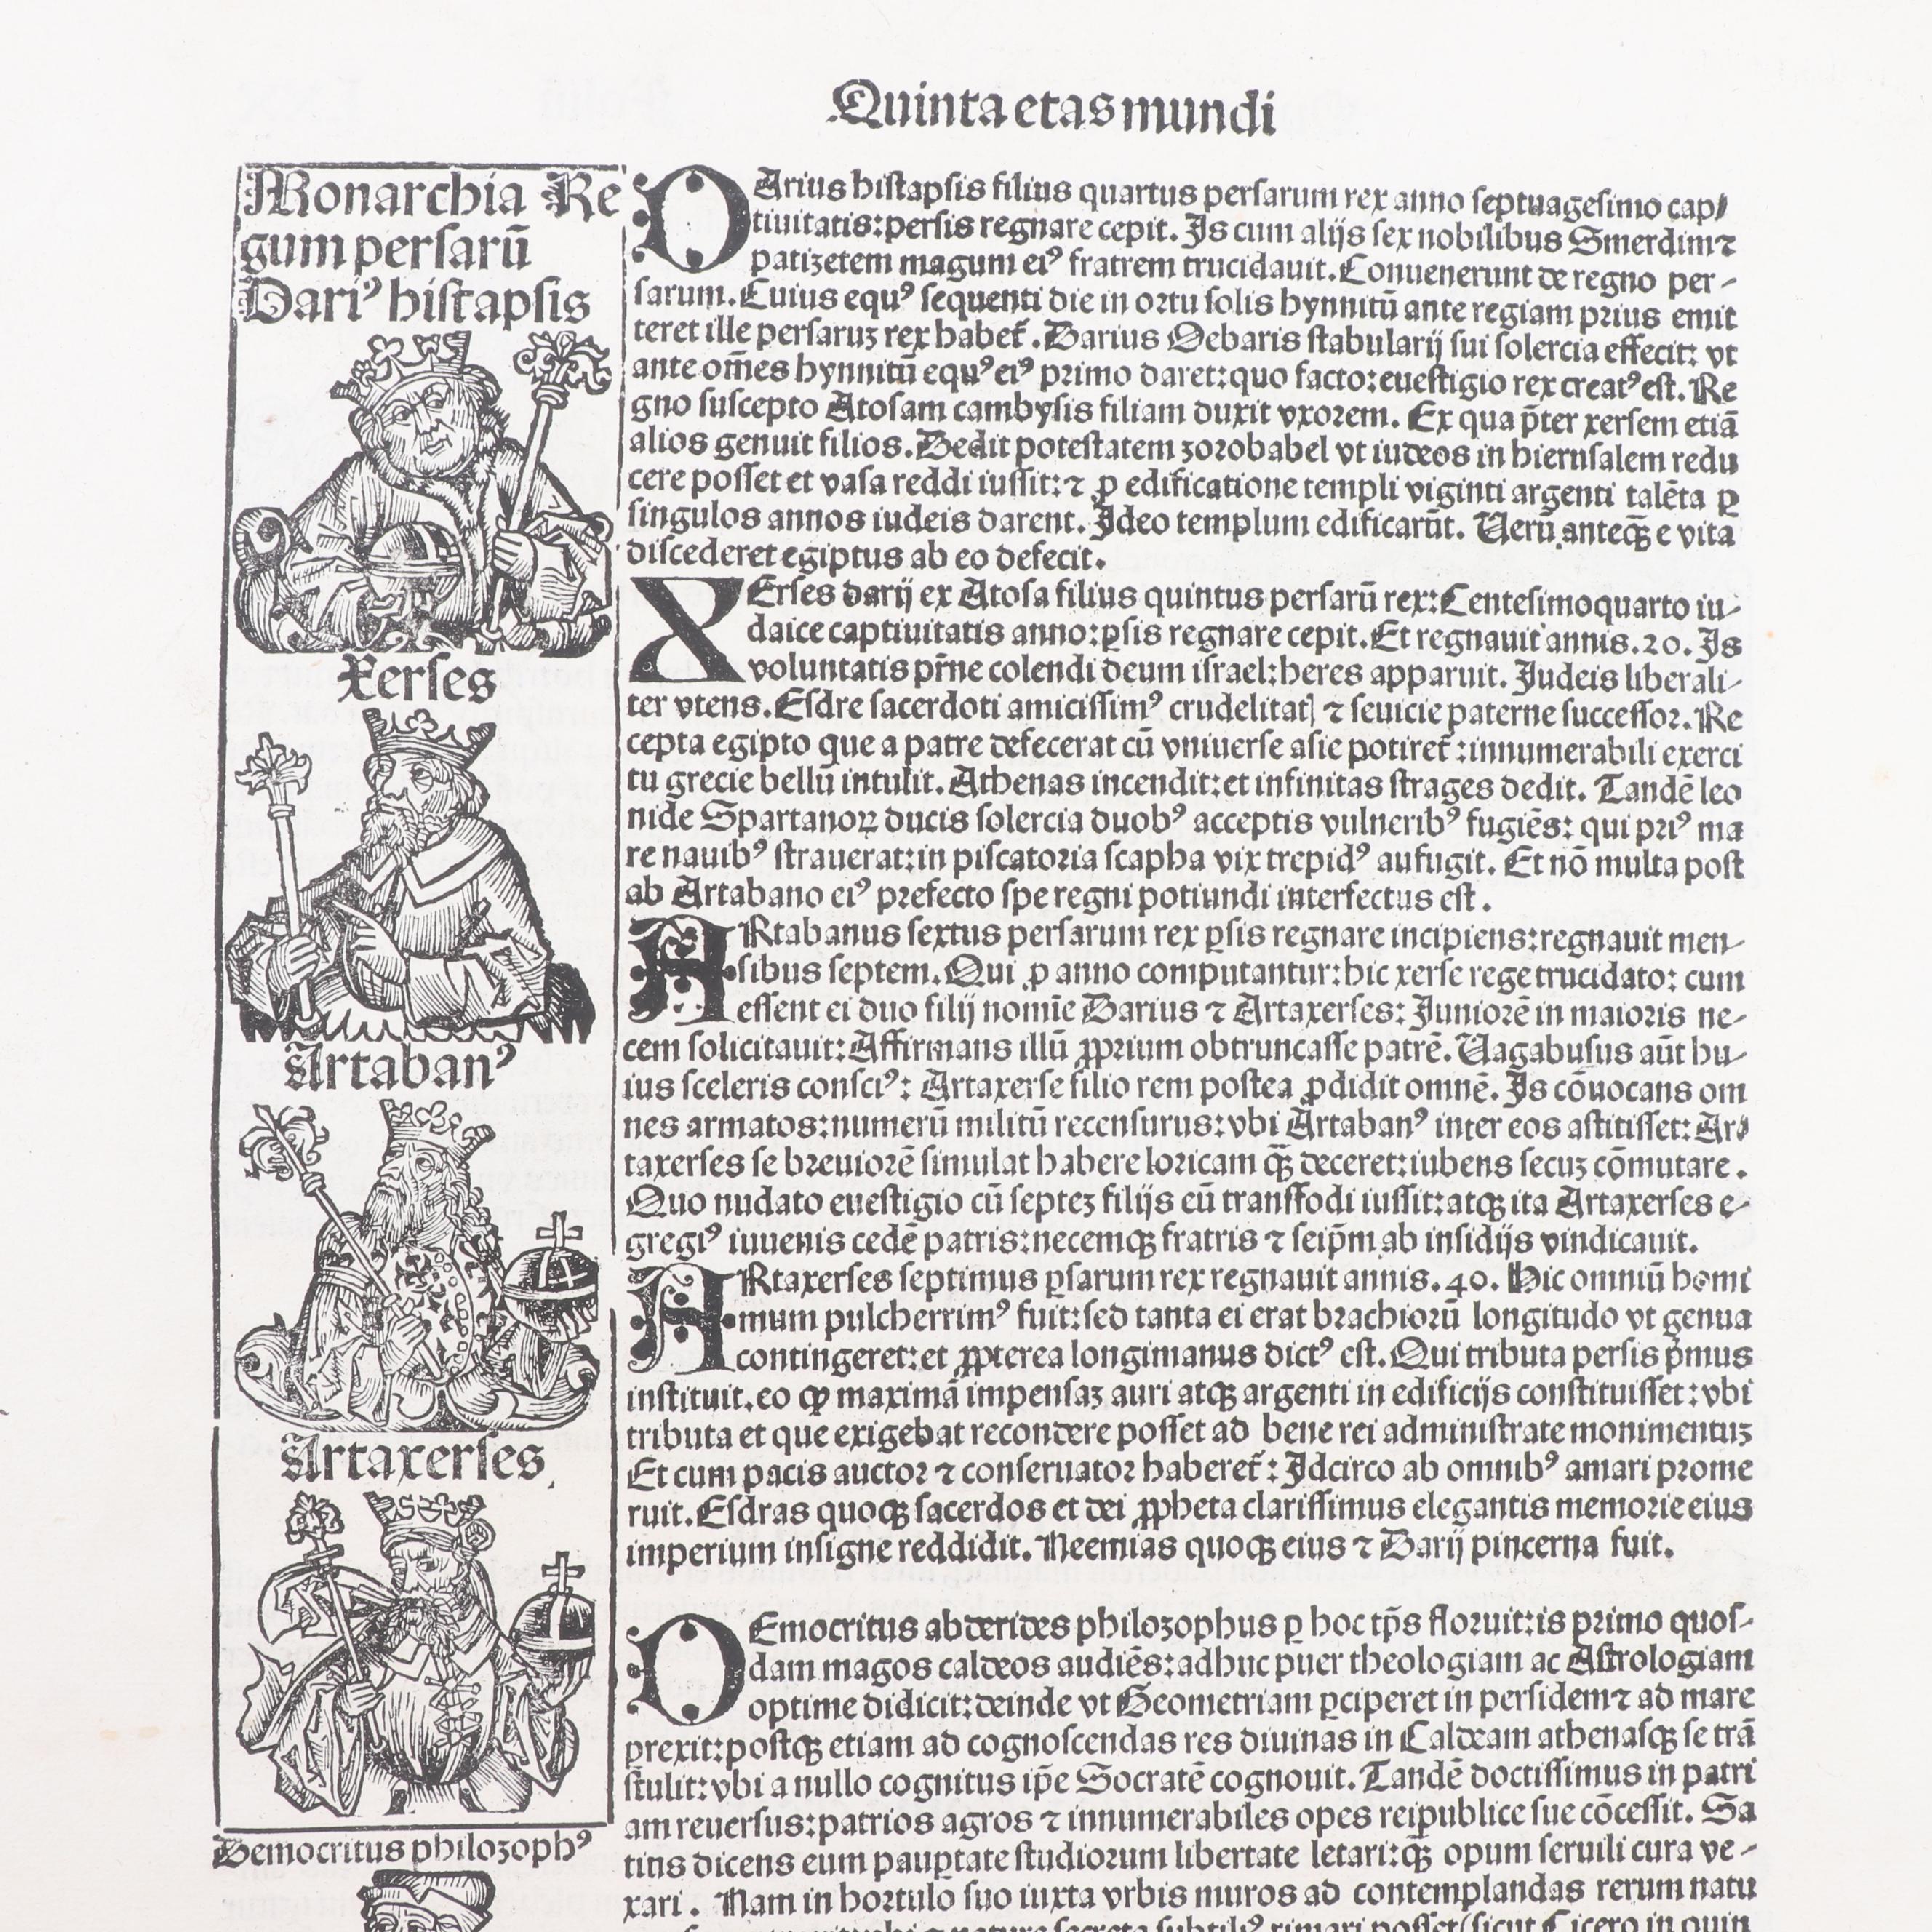 Quinta etas mundi
Monarchia Re
gum persarū
Dariꝰ histapsis
Xerses
Artabanꝰ
Artaxerses
Democritus philozophꝰ
DArius histapsis filius quartus persarum rex anno septuagesimo cap/
tiuitatis:persis regnare cepit. Is cum alijs sex nobilibus Smerdim ⁊
patizetem magum eiꝰ fratrem trucidauit. Conuenerunt de regno per-
sarum. Cuius equꝰ sequenti die in ortu solis hynnitū ante regiam prius emit
teret ille persaruz rex habet̄. Darius Oebaris stabularij sui solercia effecit: vt
ante om̄es hynnitū equꝰ eiꝰ primo daret:quo facto:euestigio rex creatꝰ est. Re
gno suscepto Atosam cambysis filiam duxit vxorem. Ex qua p̄ter xersem etiā
alios genuit filios. Dedit potestatem zorobabel vt iudeos in hierusalem redu
cere posset et vasa reddi iussit: ⁊ ꝓ edificatione templi viginti argenti talēta ꝑ
singulos annos iudeis darent. Ideo templum edificarūt. Uerū anteqꝫ e vita
discederet egiptus ab eo defecit.
XErses darij ex Atosa filius quintus persarū rex: Centesimoquarto iu-
daice captiuitatis anno:ꝑsis regnare cepit. Et regnauit annis .20. Is
voluntatis pr̄ne colendi deum israel:heres apparuit. Judeis liberali-
ter vtens. Esdre sacerdoti amicissimꝰ crudelitatꝭ ⁊ seuicie paterne successor. Re
cepta egipto que a patre defecerat cū vniuerse asie potiret̄:innumerabili exerci
tu grecie bellū intulit. Athenas incendit:et infinitas strages dedit. Tandē leo
nide Spartanoꝝ ducis solercia duobꝰ acceptis vulneribꝰ fugiēs: qui priꝰ ma
re nauibꝰ strauerat:in piscatoria scapha vix trepidꝰ aufugit. Et nō multa post
ab Artabano eiꝰ prefecto spe regni potiundi interfectus est.
ARtabanus sextus persarum rex ꝑsis regnare incipiens:regnauit men-
sibus septem. Qui ꝓ anno computantur:hic xerse rege trucidato: cum
essent ei duo filij nomīe Darius ⁊ Artaxerses: Juniorē in maioris ne-
cem solicitauit: Affirmans illū ꝓprium obtruncasse patrē. Uagabusus aūt hu-
ius sceleris consciꝰ: Artaxerse filio rem postea ꝓdidit omnē. Is cōuocans om
nes armatos:numerū militū recensurus:vbi Artabanꝰ inter eos astitisset: Ar/
taxerses se breuiorē simulat habere loricam qꝫ̄ deceret:iubens secuz cōmutare.
Quo nudato euestigio cū septez filijs eū transfodi iussit:atqꝫ ita Artaxerses e-
gregiꝰ iuuenis cedē patris:necemqꝫ fratris ⁊ seip̄m ab insidijs vindicauit.
ARtaxerses septimus ꝑsarum rex regnauit annis .40. Hic omniū homi
mum pulcherrimꝰ fuit:sed tanta ei erat brachiorū longitudo vt genua
contingeret:et ꝓpterea longimanus dictꝰ est. Qui tributa persis p̄mus
instituit. eo ꝙ maximā impensaz auri atqꝫ argenti in edificijs constituisset:vbi
tributa et que exigebat recondere posset ad bene rei administrate monimentuz
Et cum pacis auctor ⁊ conseruator haberet̄: Idcirco ab omnibꝰ amari prome
ruit. Esdras quoqꝫ sacerdos et dei ꝓpheta clarissimus elegantis memorie eius
imperium insigne reddidit. Neemias quoqꝫ eius ⁊ Darij pincerna fuit.
DEmocritus abderides philozophus ꝑ hoc tp̄s floruit:is primo quos-
dam magos caldeos audiēs:adhuc puer theologiam ac Astrologiam
optime didicit:deinde vt Geometriam ꝑciperet in persidem ⁊ ad mare
prexit:postqꝫ etiam ad cognoscendas res diuinas in Caldeam athenasqꝫ se trā
stulit:vbi a nullo cognitus ip̄e Socratē cognouit. Tandē doctissimus in patri
am reuersus:patrios agros ⁊ innumerabiles opes reipublice sue cōcessit. Sa
tius dicens eum pauꝑtate studiorum libertate letari:qꝫ̄ opum seruili cura ve-
xari. Nam in hortulo suo iuxta vrbis muros ad contemplandas rerum natu